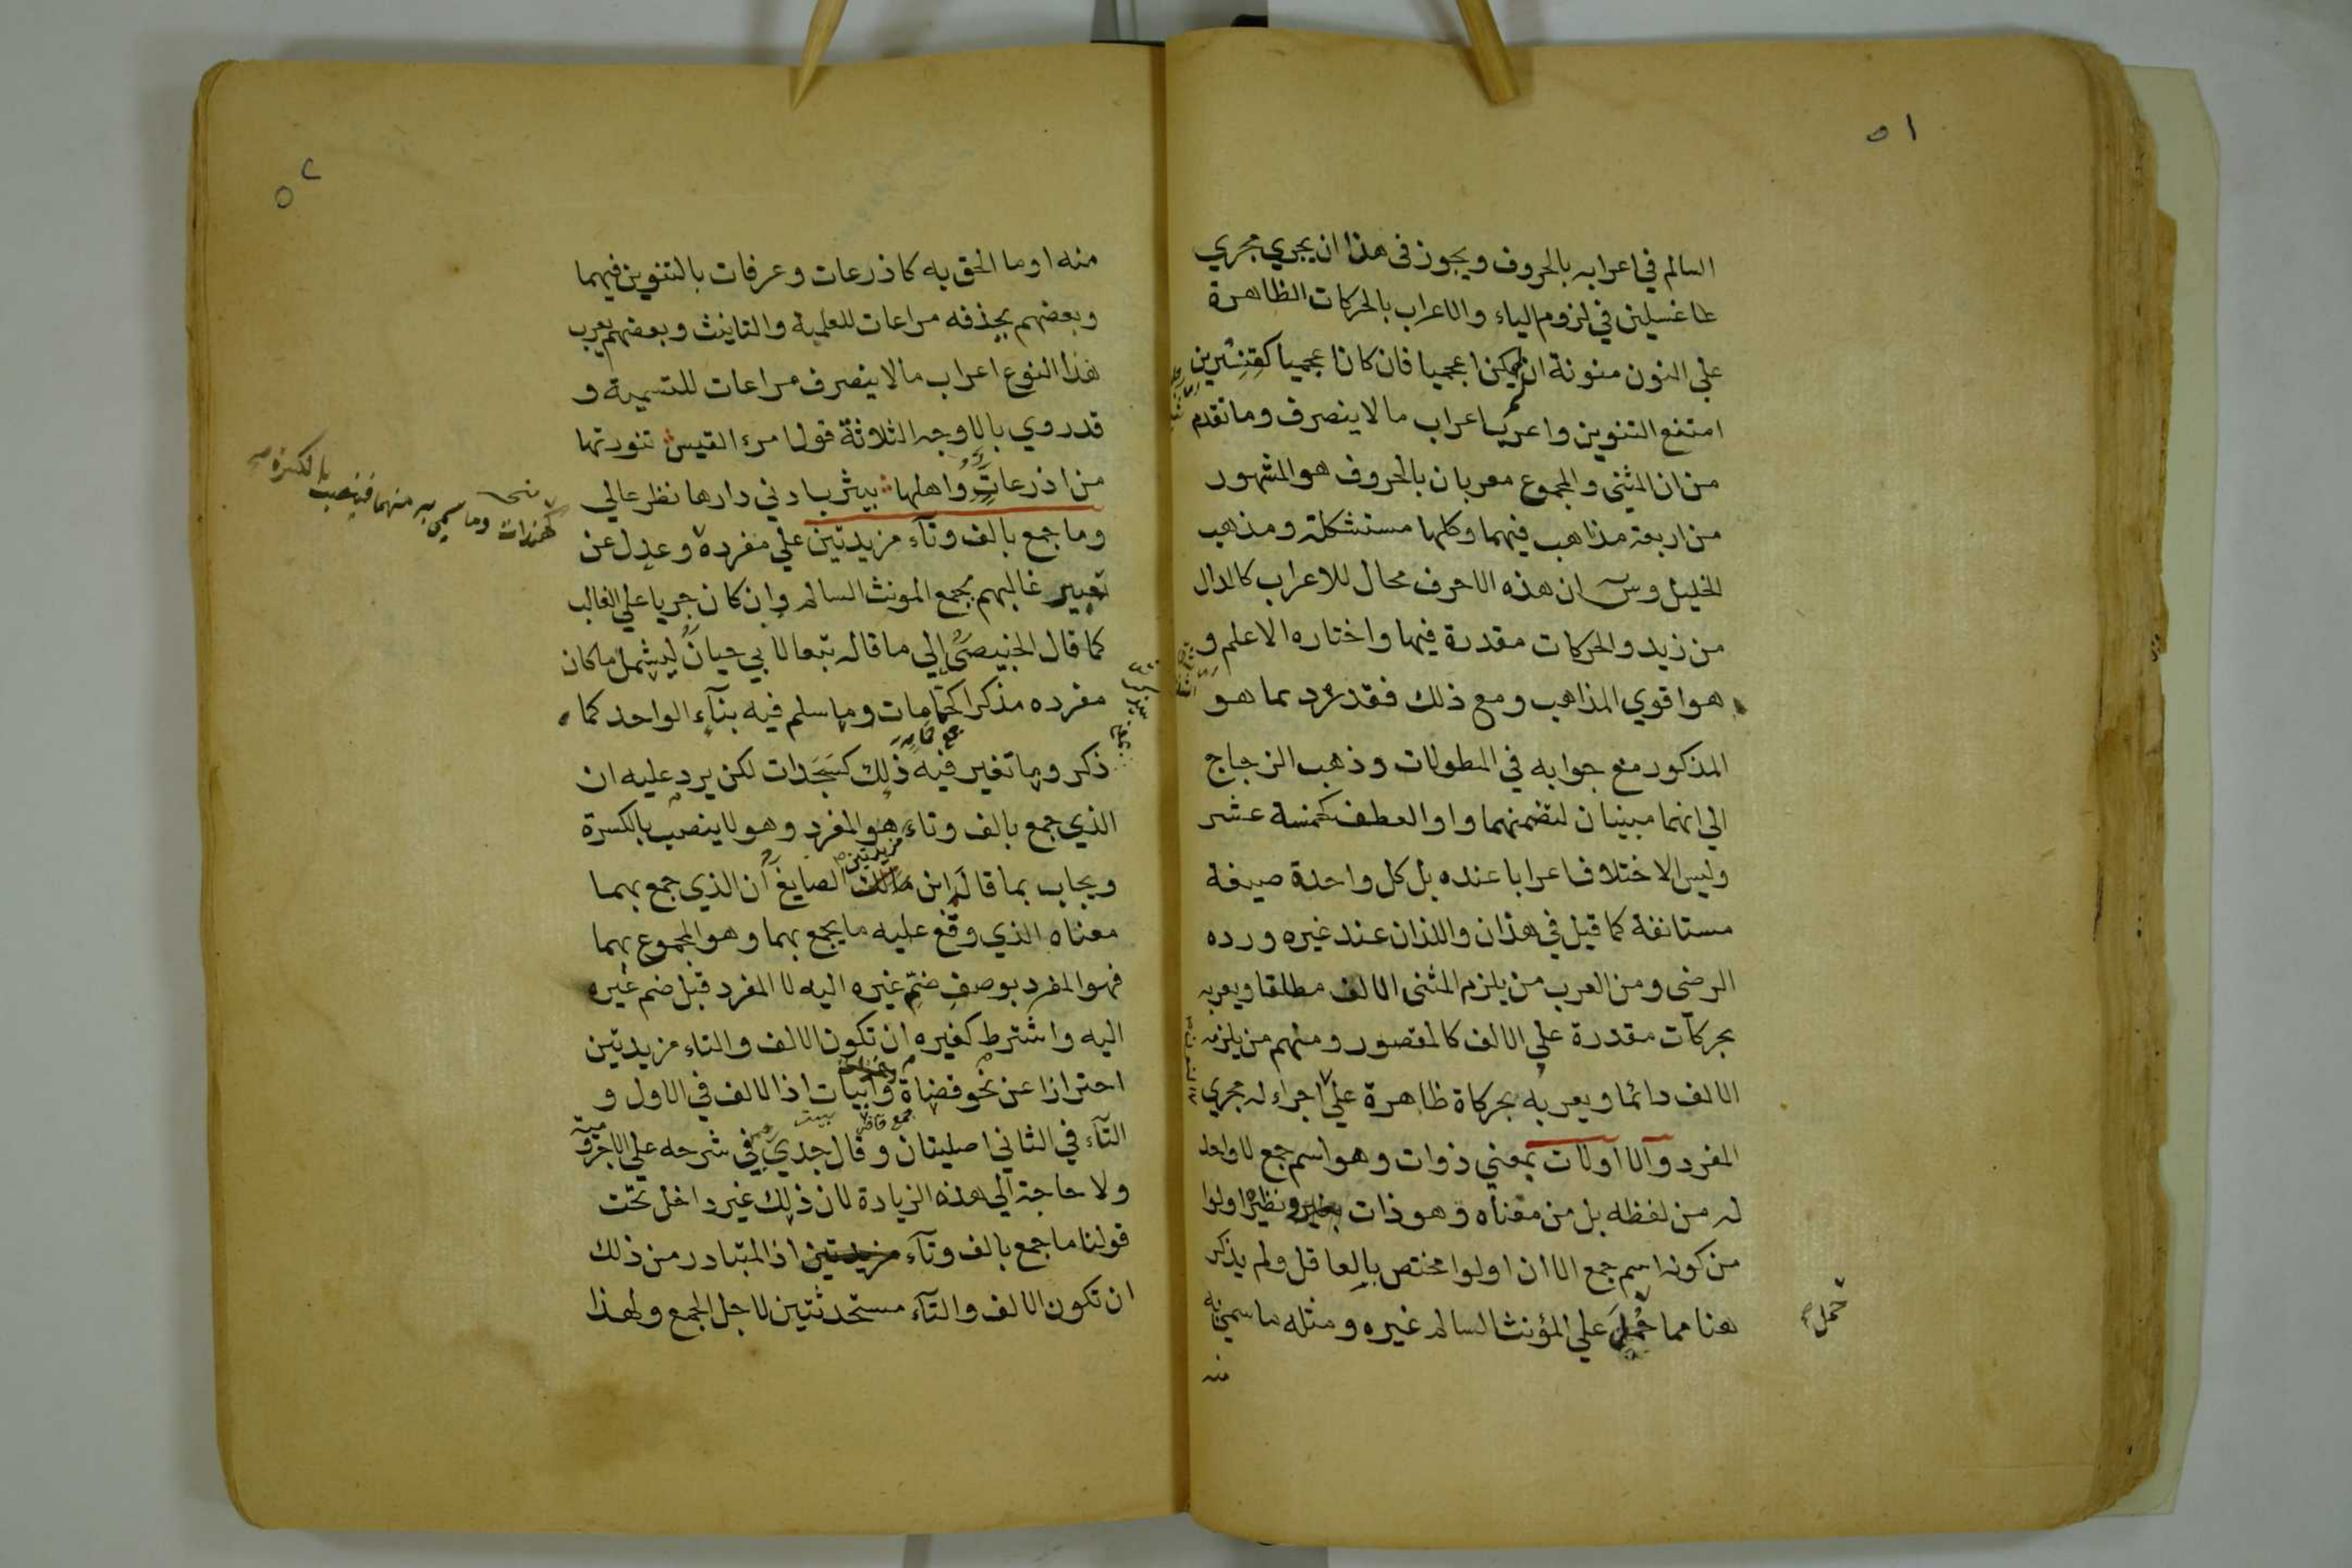 ٥١
السالم في اعرابه بالحروف ويجوز في هذا ان يجري مجري
غسلين في لزوم الياء والاعراب بالحركات الظاهرة
علي النون منونة ان لم يكن اعجميا فان كان اعجميا كقنسرين
امتنع التنوين واعرب اعراب ما لا ينصرف وما تقدم
من ان المثني والمجموع معربان بالحروف هو المشهور
من اربعة مذاهب فيهما وكلها مستشكلة ومذهب
الخليل وس ان هذه الاحرف محال للاعراب كالدال
من زيد والحركات مقدرة فيها واختاره الاعلم و
هو اقوي المذاهب ومع ذلك فقد رد بما هو
المذكور مع جوابه في المطولات وذهب الزجاج
الي انهما مبنيان لتضمنهما واو العطف كخمسة عشر
وليس الاختلاف اعرابا عنده بل كل واحدة صيغة
مستانفة كما قيل في هذان واللذان عند غيره ورده
الرضي ومن العرب من يلزم المثنى الالف مطلقا ويعربه
بحركات مقدرة علي الالف كالمقصور ومنهم من يلزمه
الالف دائما ويعربه بحركاة ظاهرة علي اجراء له مجري
المفرد والا اولات بمعني ذوات وهو اسم جمع لا واحد
له من لفظه بل من معناه وهو ذات ونظيره اولوا
من كونه اسم جمع الا ان اولوا مختص بالعاقل ولم يذكر
هنا مما حمل علي المؤنث السالم غيره ومثله ما سمي به
حمل
منه
٥٢
منه او ما الحق به كاذرعات وعرفات بالتنوين فيهما
وبعضهم يحذفه مراعات للعلمية والتانيث وبعضهم يعرب
هذا النوع اعراب ما لا ينصرف مراعات للتسمية و
قد روي بالاوجه الثلاثة قول امرء القيس تنورتها
من اذرعات واهلها بيثرب ادني دارها نظر عالي
وما جمع بالف وتآء مزيدتين علي مفرده وعدل عن
كهندات وما سمي به منهما فينصب بالكسرة
تعبير غالبهم بجمع المونث السالم وان كان جريا علي الغالب
كما قال الخبيصي الي ما قاله تبعا لابي حيان ليشمل ما كان
مفرده مذكرا كحمامات وما سلم فيه بنآء الواحد كما
ذكر وما تغير فيه ذلك كسجدات لكن يرد عليه ان
الذي جمع بالف وتاء هو المفرد وهو لا ينصب بالكسرة
مزيدتين
ويجاب بما قاله ابن الصايغ ان الذي جمع بهما
معناه الذي وقع عليه ما يجمع بهما وهو المجموع بهما
فهو المفرد بوصف ضم غيره اليه لا المفرد قبل ضم غيره
اليه واشترط كغيره ان تكون الالف والتاء مزيدتين
احترازا عن نحو قضاة وابيات اذ الالف في الاول و
جمع قاض
التآء في الثاني اصليتان وقال جدي في شرحه علي الاجرومية
ولا حاجة الي هذه الزيادة لان ذلك غير داخل تحت
قولنا ما جمع بالف وتآء مزيدتين اذ المتبادر من ذلك
ان تكون الالف والتآء مستحدثتين لاجل الجمع ولهذا